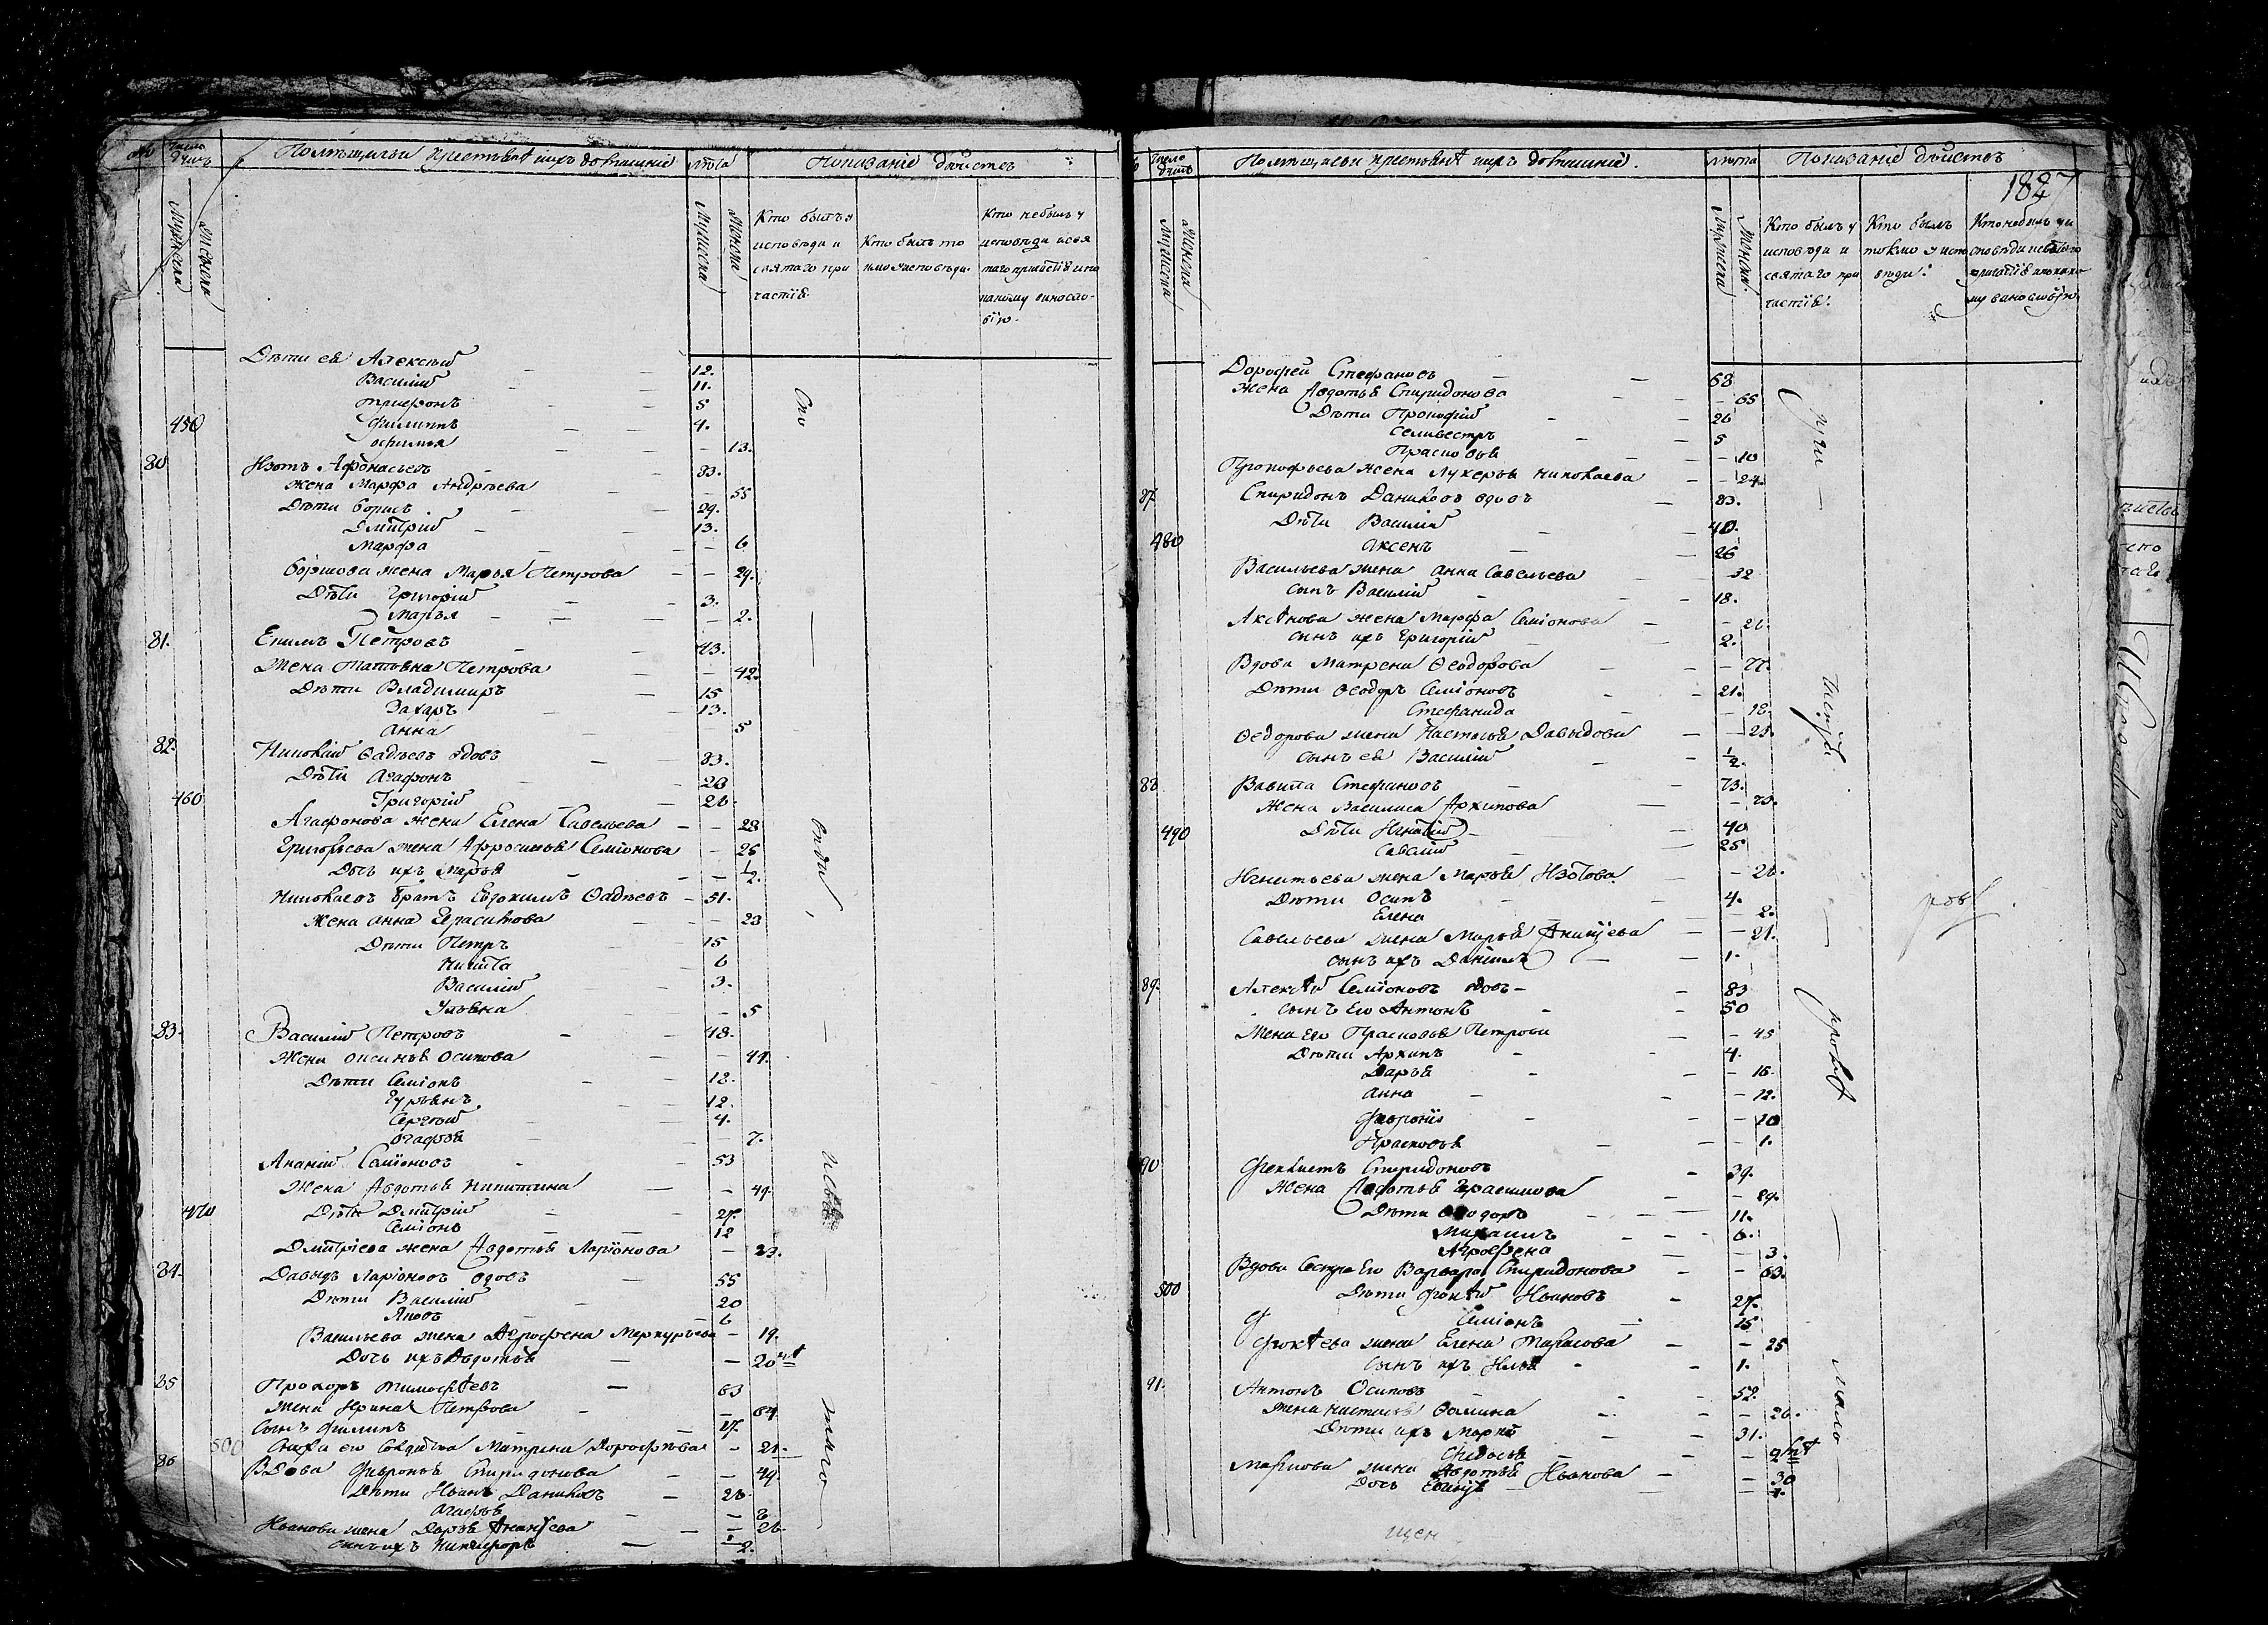 Число душъ
Помѣщичьи крестьянѣ ихъ домашніе
лѣта
Показаніе дѣйствъ
Мужеска
Женска
Мужеска
Женска
Кто былъ у
исповѣди и
святаго при
частія.
Кто былъ то
кмо у исповѣди.
Кто небылъ у
исповѣди и свя
таго причастія и по
какому винословію.
Дѣти ея Алексѣй 12.
Василій 11.
Трифонъ 5
450 Филиппъ 4.
Офимья 13.
80 Изотъ Афонасьевъ 83.
жена Марфа Андрѣева 55
Дѣти Борисъ 29.
Дмитрій 13.
Марфа 6
Борисова жена Марья Петрова 29.
Дѣти Григорій 3.
Марья 2.
81. Екимъ Петровъ 43.
Жена Татьяна Петрова 42.
Дѣти Владимиръ 15
Захаръ 13.
Анна 5
82. Николай Фадѣевъ вдовъ 83.
Дѣти Агафонъ 28
460 Григорій 26.
Агафонова жена Елена Савельева 28
Григорьева жена Афросинья Семіонова 26
Дочь ихъ Марья 1/2.
Николаевъ братъ Евдокимъ Фадѣевъ 51.
Жена Анна Герасимова 23
Дѣти Петръ 15
Никита 6
Василій 3.
Ульяна 5
83. Василій Петровъ 48.
Жена Оксинья Осипова 44.
Дѣти Семіонъ 18.
Гурьянъ 12.
Сергѣй 4.
Огафья 7.
Ананій Семіоновъ 53
Жена Авдотья Никитина 49.
470 Дѣти Дмитрій 27.
Семіонъ 12
Дмитріева жена Авдотья Ларіонова 23.
84. Давыдъ Ларіоновъ вдовъ 55
Дѣти Василій 20
Яковъ 6
Васильева жена Агрофена Меркурьева 19.
Дочь ихъ Авдотья 20 нѣ
85 Прохоръ Тимофѣевъ 63
жена Ирина Петрова 64
Сынъ Филипъ 27.
500 Матрена Дорофѣева 21.
86 Вдова Февронья Спиридонова 49.
Дѣти Иванъ Даниловъ 26.
Агафья 8
Иванова жена Дарья Ананьева 26.
сынъ ихъ Никифоръ 2.
Сіи
исповѣ
Число душъ
Помѣщичьи крестьянѣ ихъ домашніе.
лѣта
Показаніе дѣйствъ
1827
Мужеска
Женска
Мужеска
Женска.
Кто былъ у
исповѣди и
святаго при
частія.
Кто былъ
токмо у испо
вѣди.
Кто небылъ у и
сповѣди
Дорофей Стефановъ 68
жена Авдотья Спиридонова 65
Дѣти Прокофій 26
Селивестръ 5
Прасковья 10
Прокофьева жена Лукерья Николаева 24.
87. Спиридонъ Даниловъ вдовъ 83.
Дѣти Василій 40.
480 Аксенъ 26
Васильева жена Анна Савельева 32
сынъ Василій 18.
Аксѣнова жена Марфа Семіонова 26.
сынъ ихъ Григорій 2.
Вдова Матрена Феодорова 77.
Дѣти Феодоръ Семіоновъ 21.
Стефанида 18.
Федорова жена Настасья Давыдова 23.
сынъ ея Василій 1/2.
88 Вавила Стефановъ 73.
жена Василиса Архипова 73.
490 Дѣти Игнатій 40
Савелій 25
Игнатьева жена Марья Изотова 26.
Дѣти Осипъ 4.
Елена 2.
Савельева жена Марья Ананьева 21.
сынъ ихъ Даніилъ 1.
89. Алексѣй Семіоновъ вдовъ 83
сынъ Его Антонъ 50
жена Его Прасковья Петрова 45
Дѣти Архипъ 4.
Дарья 16.
Анна 12.
Февронія 10
Прасковья 1.
90 Феклистъ Спиридоновъ 39.
жена Авдотья Герасимова 39.
Дѣти Феодоръ 11.
Михаилъ 6.
Агрофена 3.
Вдова Сестра Его Варвара Спиридонова 63.
500 Дѣти Фокѣй Ивановъ 27.
Семіонъ 25
Фокѣева жена Елена Тарасова 25
сынъ ихъ Илья 1.
91. Антонъ Осиповъ 52.
жена Настасья Фомина 26.
Дѣти ихъ Марко 31.
Федосья
Маркова жена Авдотья Иванова 30
Дочь 4.
щен